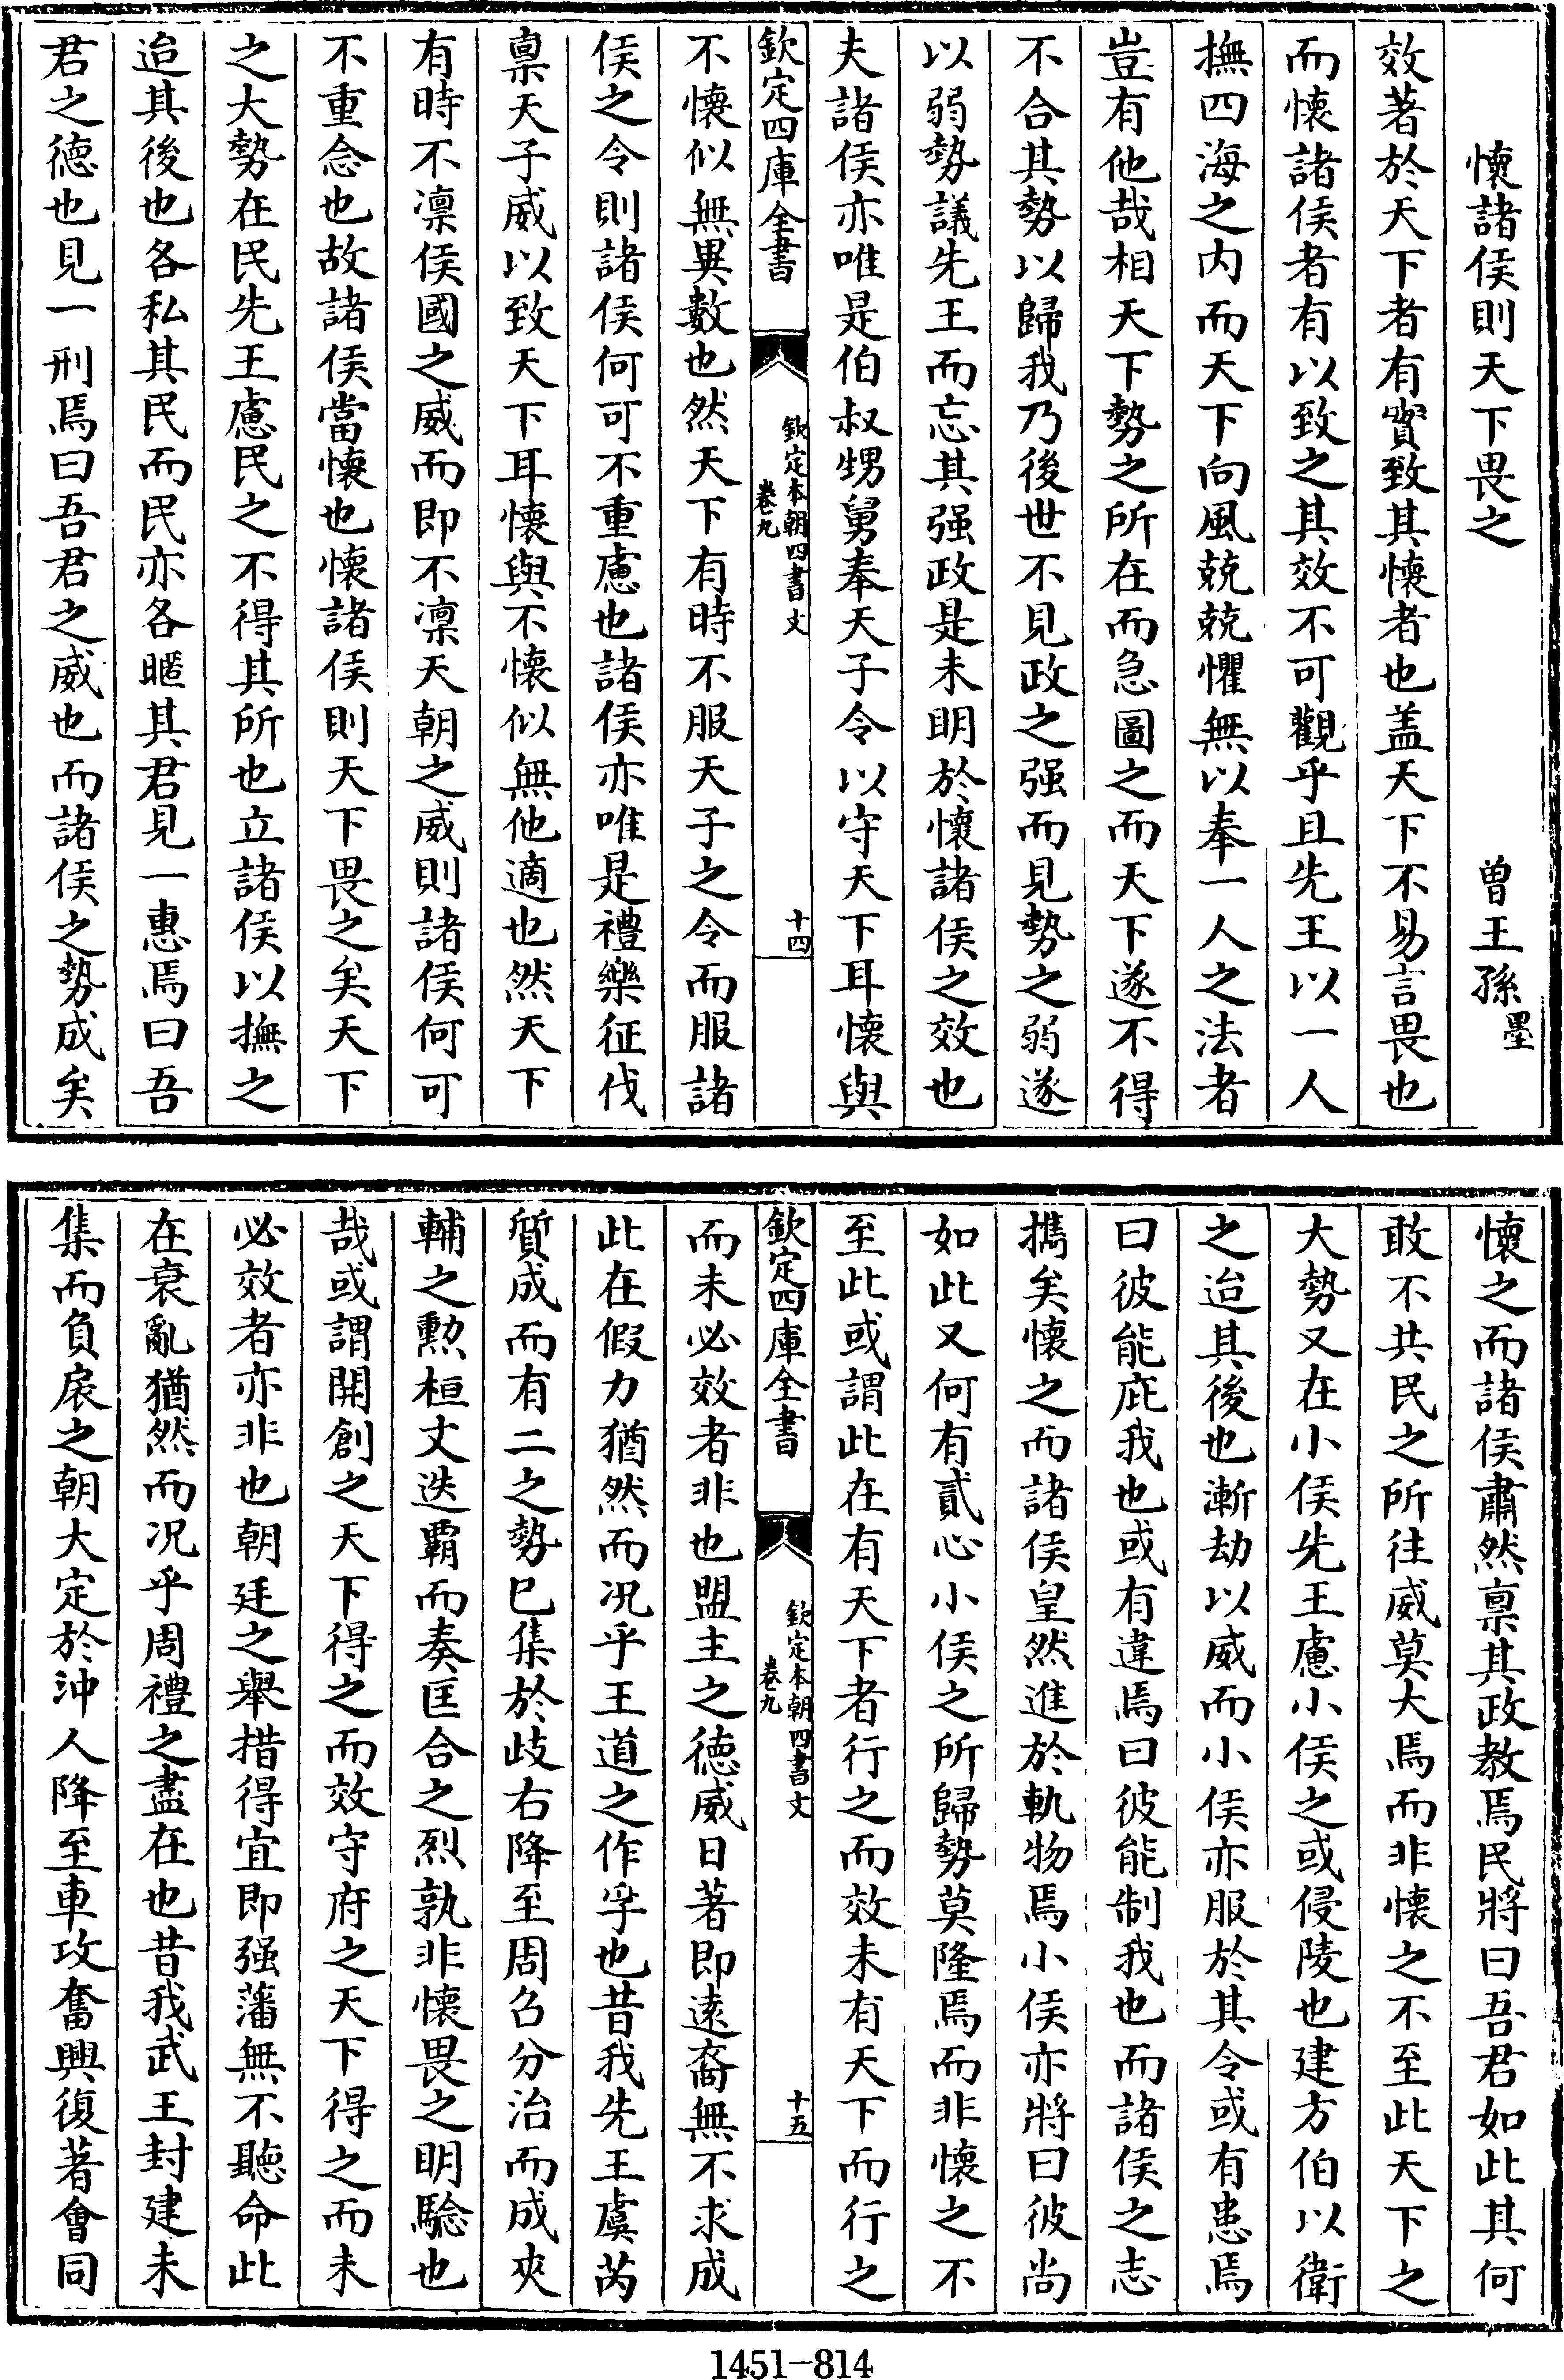 懐諸侯則天下畏之　曽王孫墨
效著於天下者有實致其懐者也盖天下不易言畏也
而懐諸侯者有以致之其效不可觀乎且先王以一人
撫四海之内而天下向風兢兢懼無以奉一人之法者
豈有他哉相天下勢之所在而急圖之而天下遂不得
不合其勢以歸我乃後世不見政之强而見勢之弱遂
以弱勢議先王而忘其强政是未明於懐諸侯之效也
夫諸侯亦唯是伯叔甥舅奉天子令以守天下耳懐與
欽定四庫全書
欽定本朝四書文
卷九
十四
不懐似無異數也然天下有時不服天子之令而服諸
侯之令則諸侯何可不重慮也諸侯亦唯是禮樂征伐
禀天子威以致天下耳懐與不懐似無他適也然天下
有時不凛侯國之威而即不凛天朝之威則諸侯何可
不重念也故諸侯當懐也懐諸侯則天下畏之矣天下
之大勢在民先王慮民之不得其所也立諸侯以撫之
迨其後也各私其民而民亦各暱其君見一惠焉曰吾
君之德也見一刑焉曰吾君之威也而諸侯之勢成矣
懐之而諸侯肅然禀其政教焉民將曰吾君如此其何
敢不共民之所往威莫大焉而非懐之不至此天下之
大勢又在小侯先王慮小侯之或侵陵也建方伯以衛
之迨其後也漸劫以威而小侯亦服於其令或有患焉
曰彼能庇我也或有違焉曰彼能制我也而諸侯之志
携矣懐之而諸侯皇然進於軌物焉小侯亦將曰彼尚
如此又何有貳心小侯之所歸勢莫隆焉而非懐之不
至此或謂此在有天下者行之而效未有天下而行之
欽定四庫全書
欽定本朝四書文
卷九
十五
而未必效者非也盟主之德威日著即逺裔無不求成
此在假力猶然而况乎王道之作孚也昔我先王虞芮
質成而有二之勢已集於歧右降至周召分治而成夾
輔之勲桓文迭覇而奏匡合之烈孰非懐畏之明驗也
哉或謂開創之天下得之而效守府之天下得之而未
必效者亦非也朝廷之舉措得宜即强藩無不聽命此
在衰亂猶然而况乎周禮之盡在也昔我武王封建未
集而負扆之朝大定於沖人降至車攻奮興復著會同
1451-814